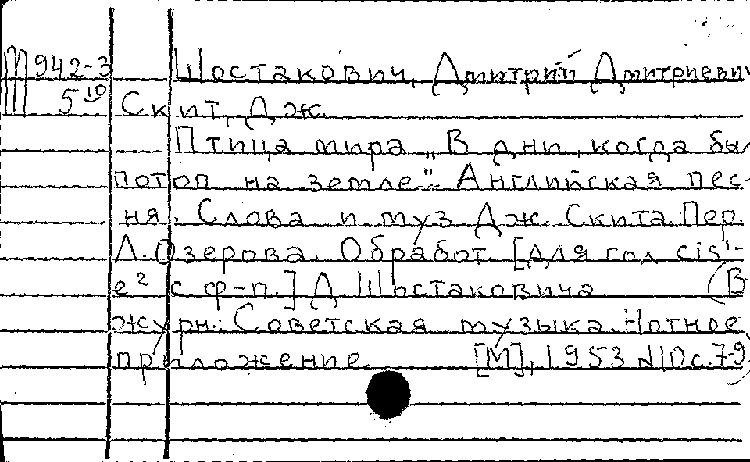 Ш 942-3 Шостакович, Дмитрий Дмитриевич
5 10 Скит, Дж.
Птица мира „В дни, когда был
потоп на земле". Английская пес-
ня. Слова и муз Дж. Скита. Пер.
Л. Озерова. Обработ. [для гол cis'-
e² с ф-п.] Д Шостаковича (В
журн.: Советская музыка. Нотное
приложение. [М], 1953 №10 с. 7-9)